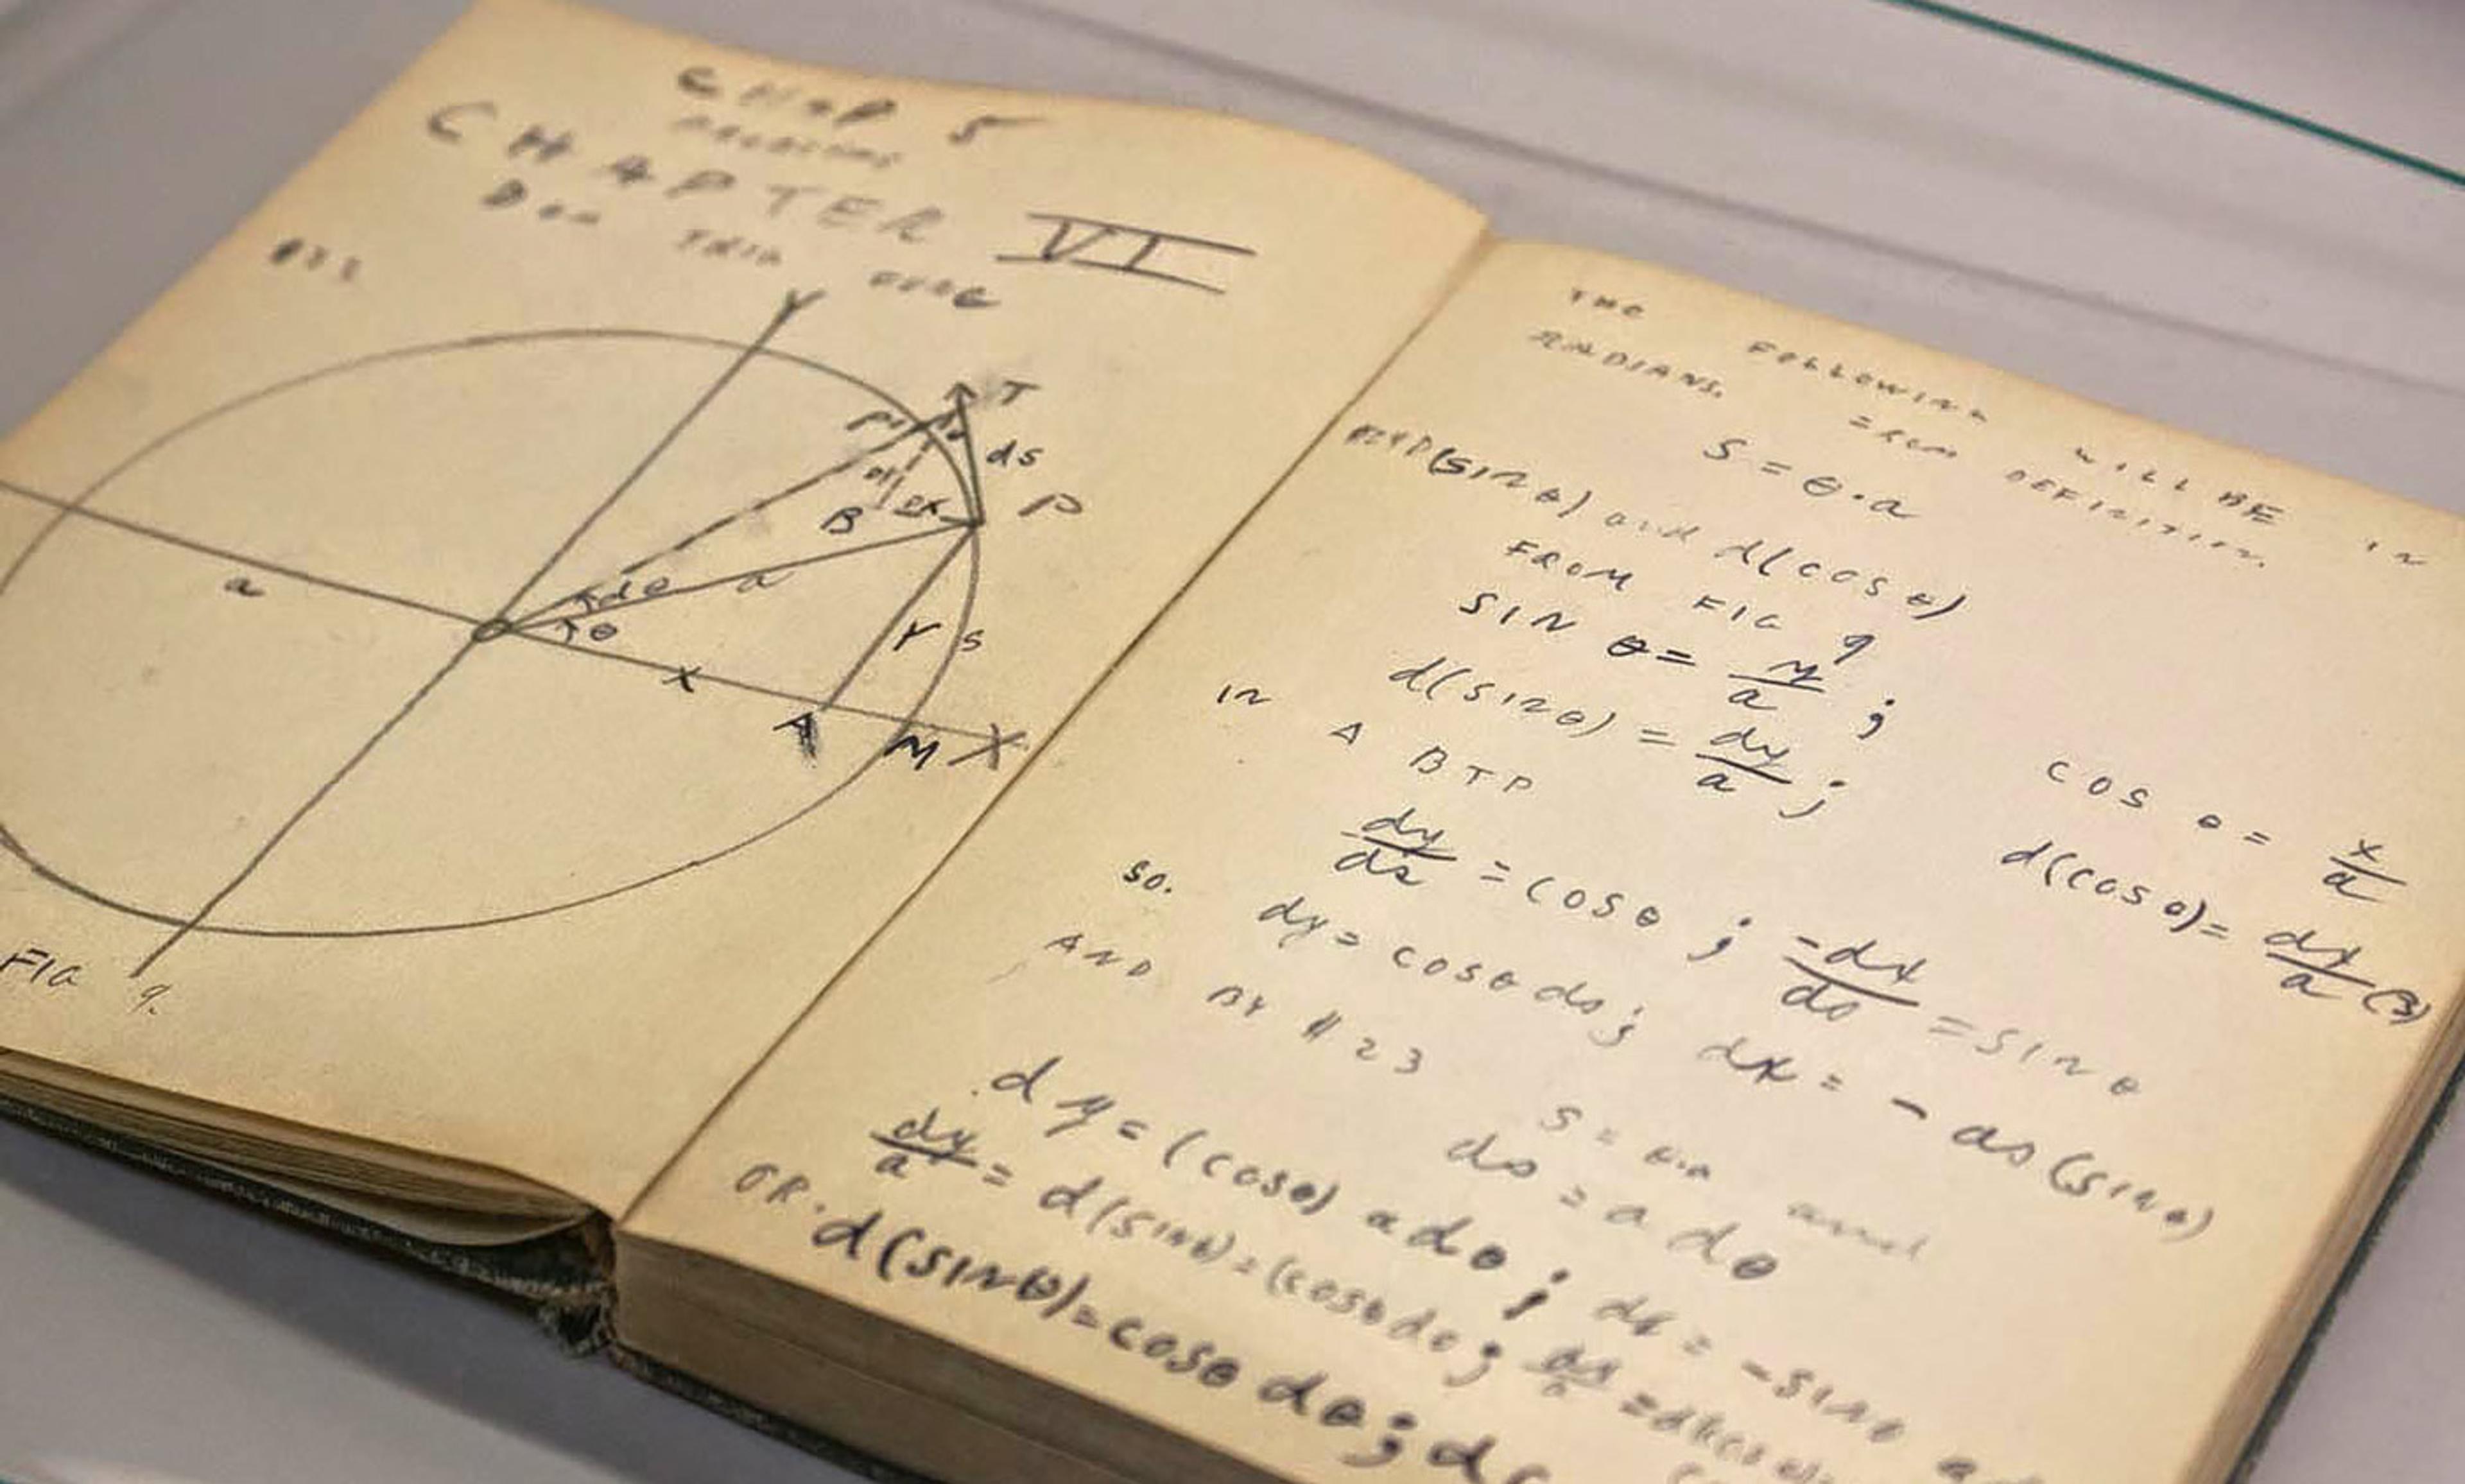 CHAP 5
CHAPTER VI
TRIG FUNC
Y
T
P'
ds
dy
dx
B
P
a
dθ
a
θ
Y S
X
A M X
FIG 9.
THE FOLLOWING WILL BE IN
RADIANS. FROM DEFINITION.
S = θ·a
(SIN θ) and d(COS θ)
FROM FIG 9
SIN θ = y/a ; COS θ = x/a
d(SIN θ) = dy/a ; d(COS θ) = dx/a (3)
IN Δ BTP
dy/ds = COS θ ; -dx/ds = SIN θ
SO. dy = COS θ ds ; dx = - ds (SIN θ)
AND BY #23 S = θ·a and
ds = a dθ
dy = (COS θ) a dθ ; dx = -SIN θ a d
dy/a = d(SIN θ) = (COS θ dθ ; dx/a = d(COS θ) =
OR. d(SIN θ) = COS θ dθ ; d(